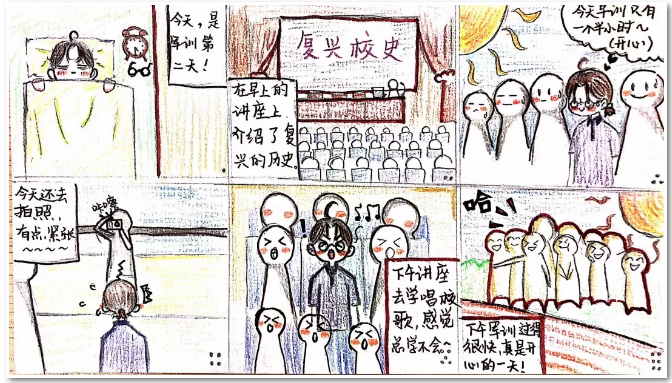 今天,是
军训第
二天!
复兴校史
在早上的
讲座上,
介绍了复
兴的历史
今天军训只有
一个半小时~
(开心)
今天还去
拍照,
有点紧张
~~~~
咔嚓
下午讲座
去学唱校
歌,感觉
总学不会~
哈
下午军训过得
很快,真是开
心的一天!